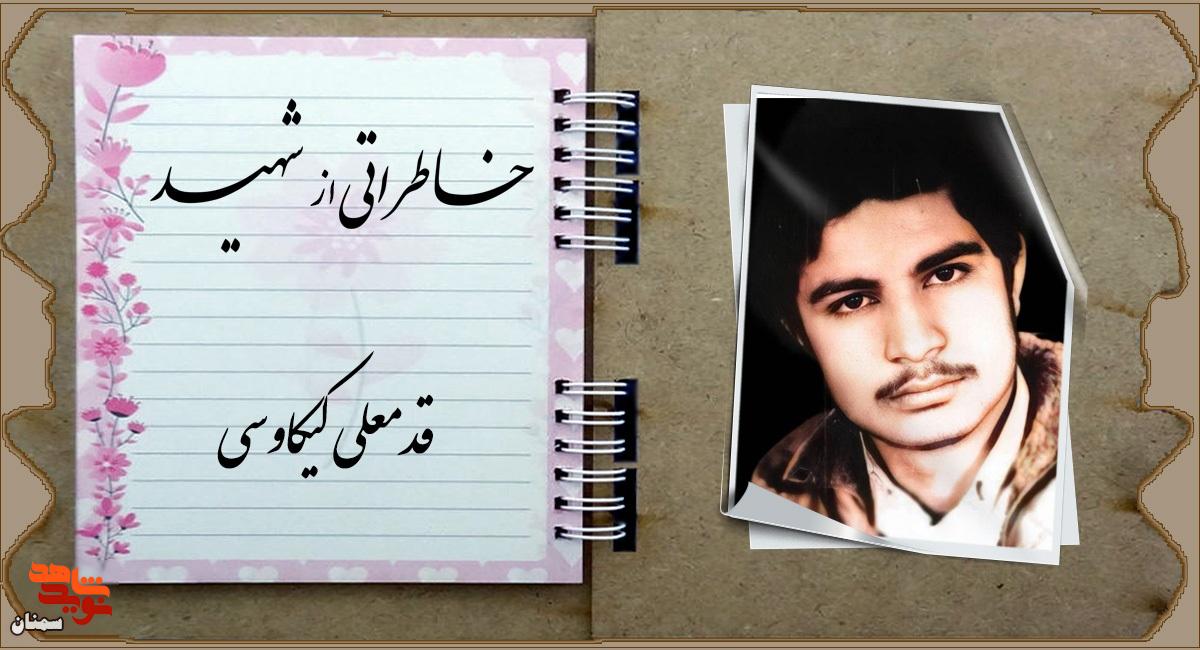 خاطراتی از شهید
قدمعلی کیکاوسی
نوید شاهد
سمنان